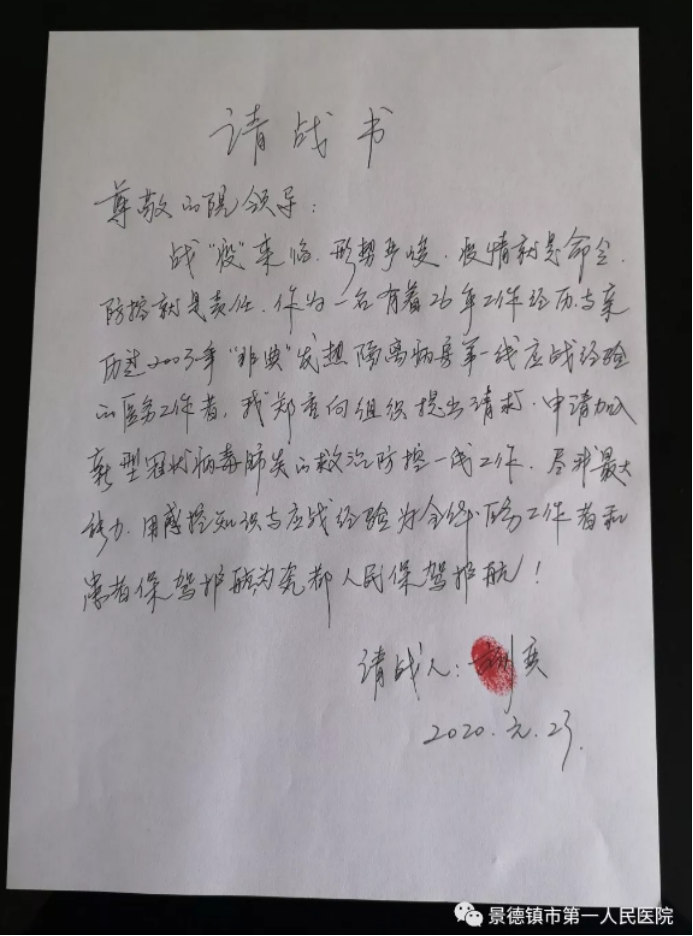 请战书
尊敬的院领导：
战“疫”来临，形势严峻，疫情就是命令，
防控就是责任，作为一名有着26年工作经历与亲
历过2003年“非典”发热隔离病房第一线应战经验
的医务工作者，我郑重向组织提出请求，申请加入
新型冠状病毒肺炎的救治防控一线工作，尽我最大
能力，用感控知识与应战经验为全体医务工作者和
患者保驾护航，为瓷都人民保驾护航！
请战人：
2020.元.23.
景德镇市第一人民医院